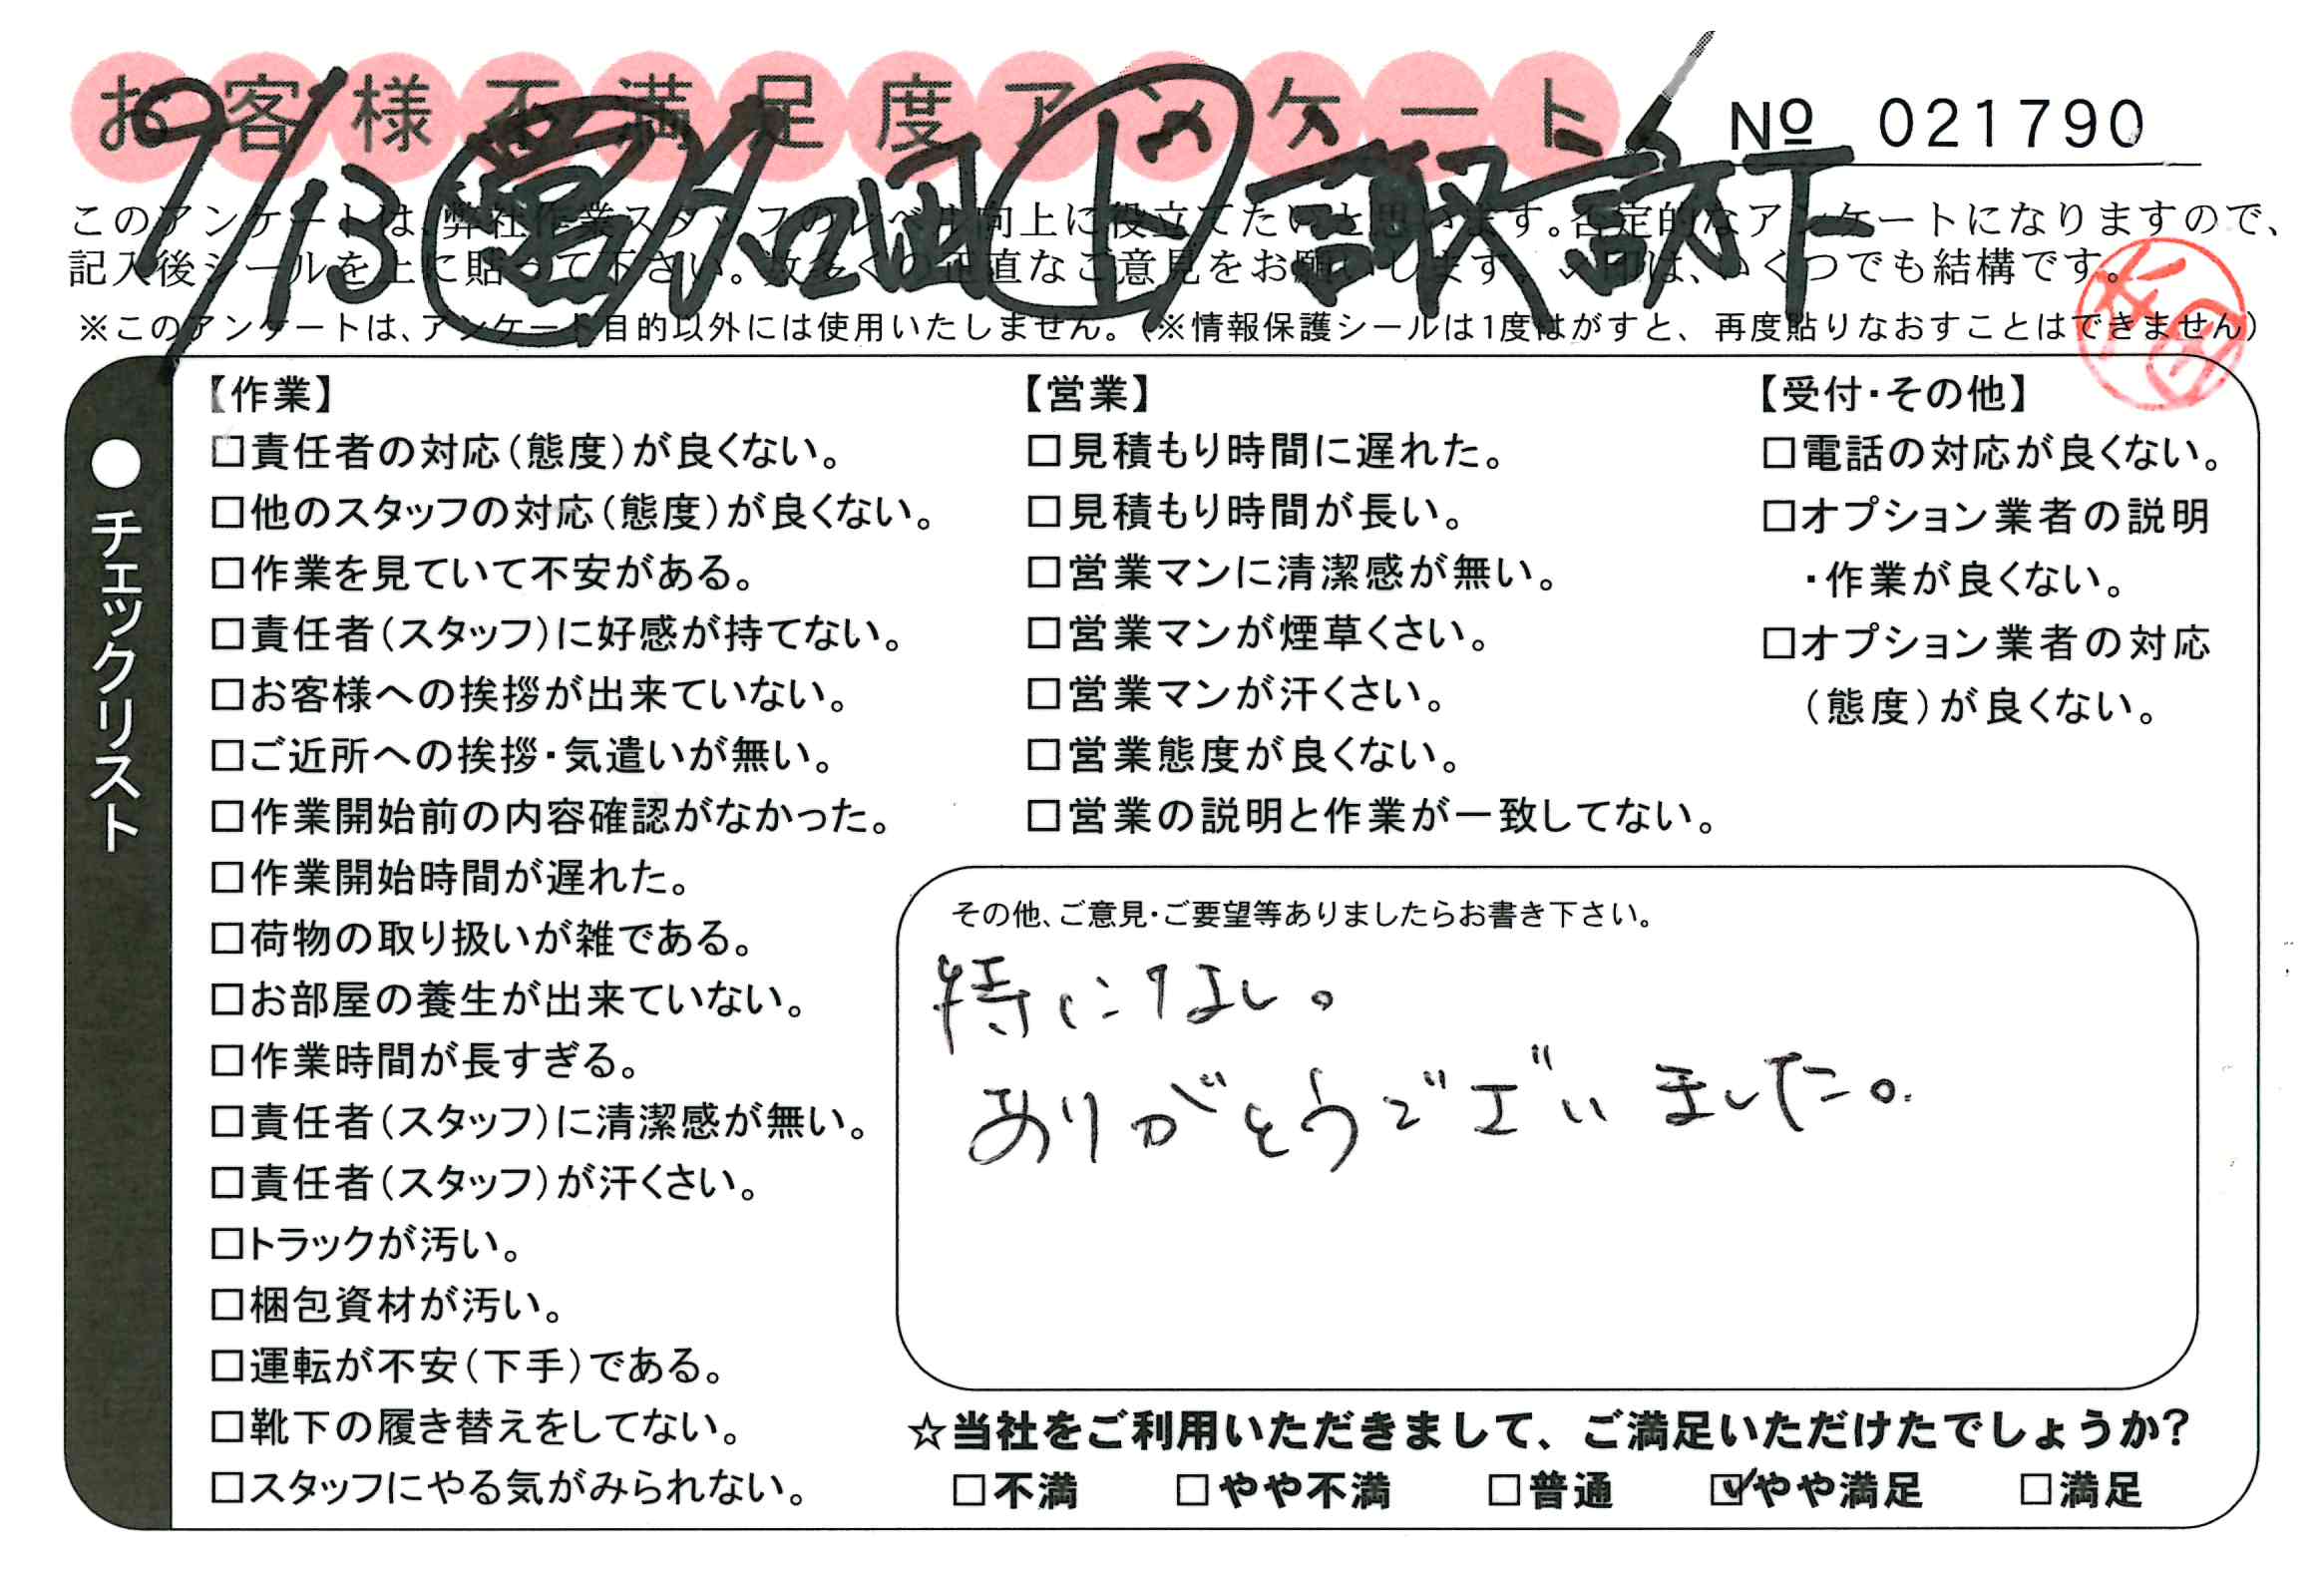 お客様不満足度アンケート
№ 021790
9/13
このアンケートは、弊社作業スタッフのレベル向上に役立てたいと思います。否定的なアンケートになりますので、
記入後シールを上に貼って下さい。数多くの正直なご意見をお願いします。✓印は、いくつでも結構です。
※このアンケートは、アンケート目的以外には使用いたしません。（※情報保護シールは1度はがすと、再度貼りなおすことはできません）
●チェックリスト
【作業】
□責任者の対応（態度）が良くない。
□他のスタッフの対応（態度）が良くない。
□作業を見ていて不安がある。
□責任者（スタッフ）に好感が持てない。
□お客様への挨拶が出来ていない。
□ご近所への挨拶・気遣いが無い。
□作業開始前の内容確認がなかった。
□作業開始時間が遅れた。
□荷物の取り扱いが雑である。
□お部屋の養生が出来ていない。
□作業時間が長すぎる。
□責任者（スタッフ）に清潔感が無い。
□責任者（スタッフ）が汗くさい。
□トラックが汚い。
□梱包資材が汚い。
□運転が不安（下手）である。
□靴下の履き替えをしてない。
□スタッフにやる気がみられない。
【営業】
□見積もり時間に遅れた。
□見積もり時間が長い。
□営業マンに清潔感が無い。
□営業マンが煙草くさい。
□営業マンが汗くさい。
□営業態度が良くない。
□営業の説明と作業が一致してない。
【受付・その他】
□電話の対応が良くない。
□オプション業者の説明
・作業が良くない。
□オプション業者の対応
（態度）が良くない。
その他、ご意見・ご要望等ありましたらお書き下さい。
特になし。
ありがとうございました。
☆当社をご利用いただきまして、ご満足いただけたでしょうか？
□不満 □やや不満 □普通 ☑やや満足 □満足